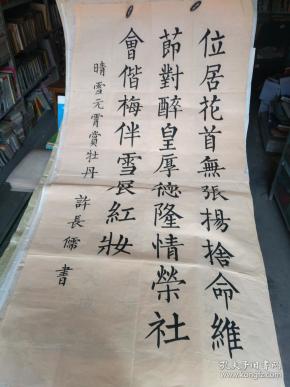 位居花首無張揚捨命維
節對醉皇厚德隆情榮社
會偕梅伴雪展紅妝
晴雪元霄賞牡丹
許長儒書
孔夫子旧书网